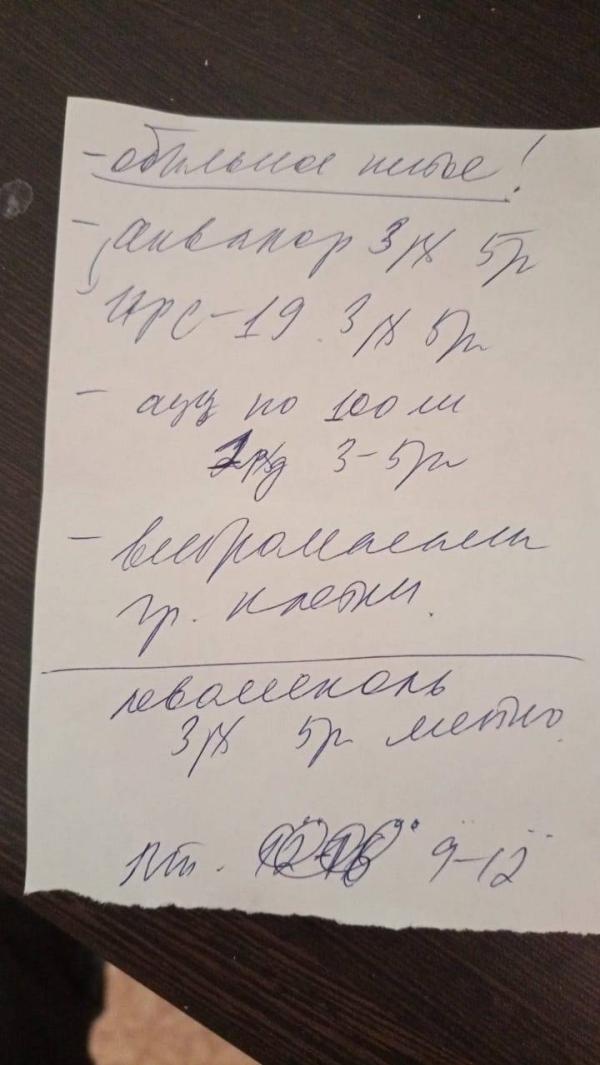 - обильное питье!
- аквалор 3 р/д 5 дн
ИРС-19 3 р/д 5 дн
- ацц по 100 мг
2 р/д 3-5 дн
- вибромассаж
гр. клетки.
левомеколь
3 р/д 5 дн местно.
пт. 9⁰⁰-12⁰⁰